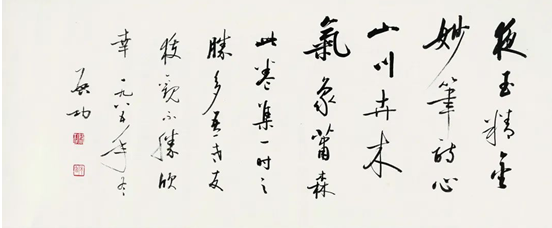 玉精金
妙筆詩心
山川卉木
氣象蕭森
此卷集一時之
勝多友
獲觀不勝欣
幸 一九八五年冬
启功